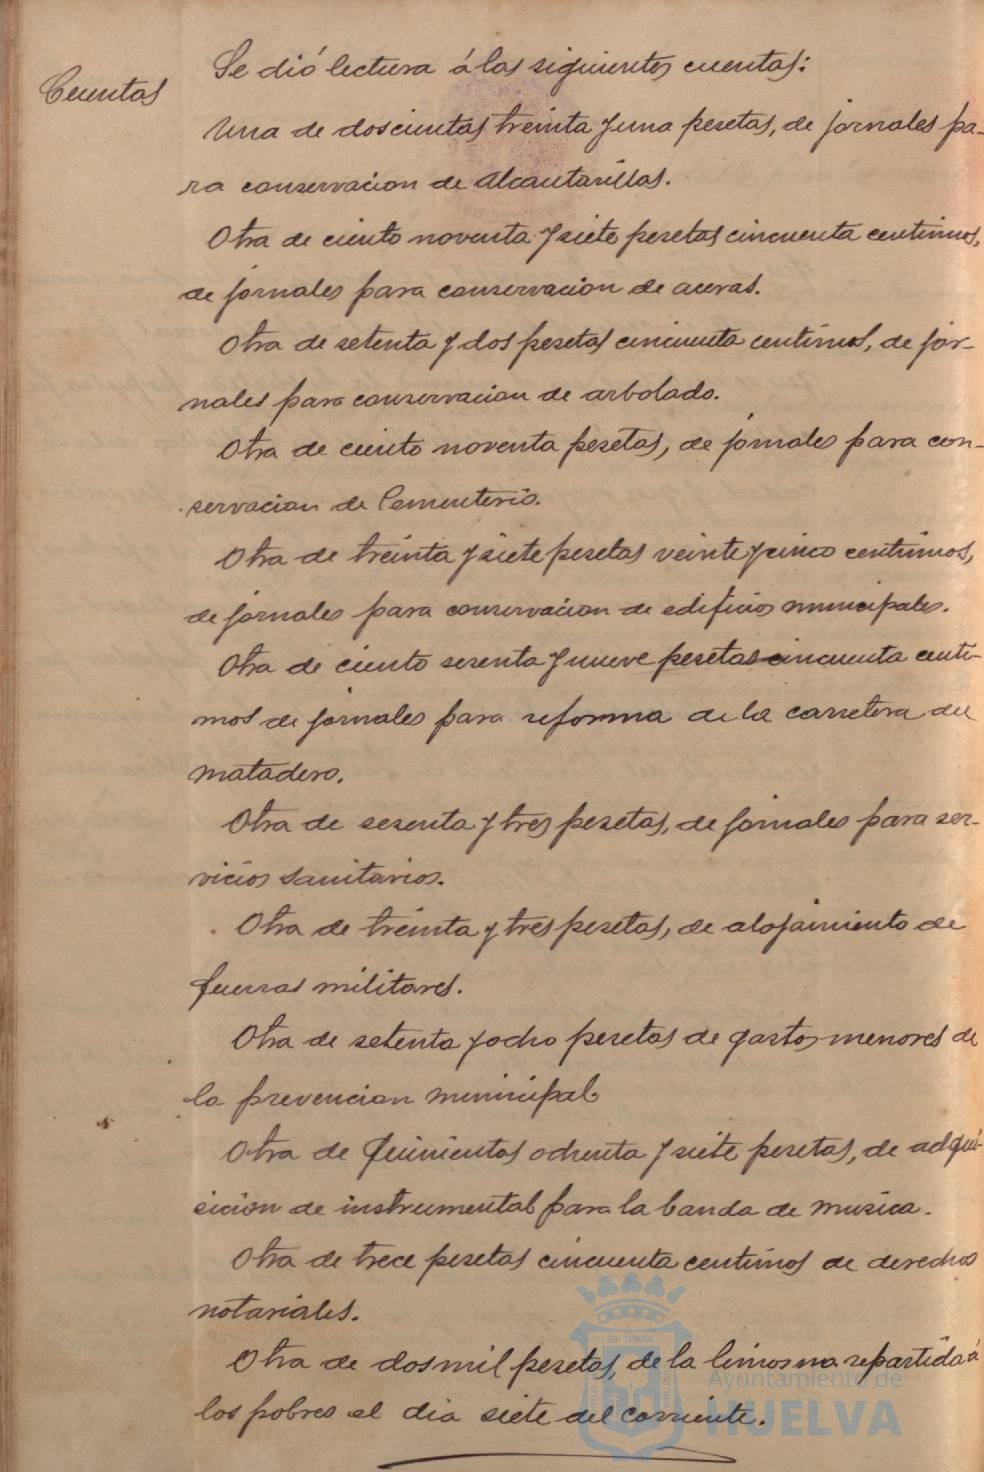 Cuentas
Se dió lectura á las siguientes cuentas:
Una de doscientas treinta y una pesetas, de jornales pa-
ra conservacion de alcantarillas.
Otra de ciento noventa y siete pesetas cincuenta centimos,
de jornales para conservacion de aceras.
Otra de setenta y dos pesetas cincuenta centimos, de jor-
nales para conservacion de arbolado.
Otra de ciento noventa pesetas, de jornales para con-
servacion de Cementerio.
Otra de treinta y siete pesetas veinte y cinco centimos,
de jornales para conservacion de edificios municipales.
Otra de ciento sesenta y nueve pesetas cincuenta centi-
mos de jornales para reforma de la carretera del
matadero.
Otra de sesenta y tres pesetas, de jornales para ser-
vicios sanitarios.
Otra de treinta y tres pesetas, de alojamiento de
fuerzas militares.
Otra de setenta y ocho pesetas de gastos menores de
la prevencion municipal
Otra de quinientas ochenta y siete pesetas, de adqui-
sicion de instrumental para la banda de musica.
Otra de trece pesetas cincuenta centimos de derechos
notariales.
Otra de dos mil pesetas, de la limosna repartida á
los pobres el dia siete del corriente.
Ayuntamiento de
HUELVA